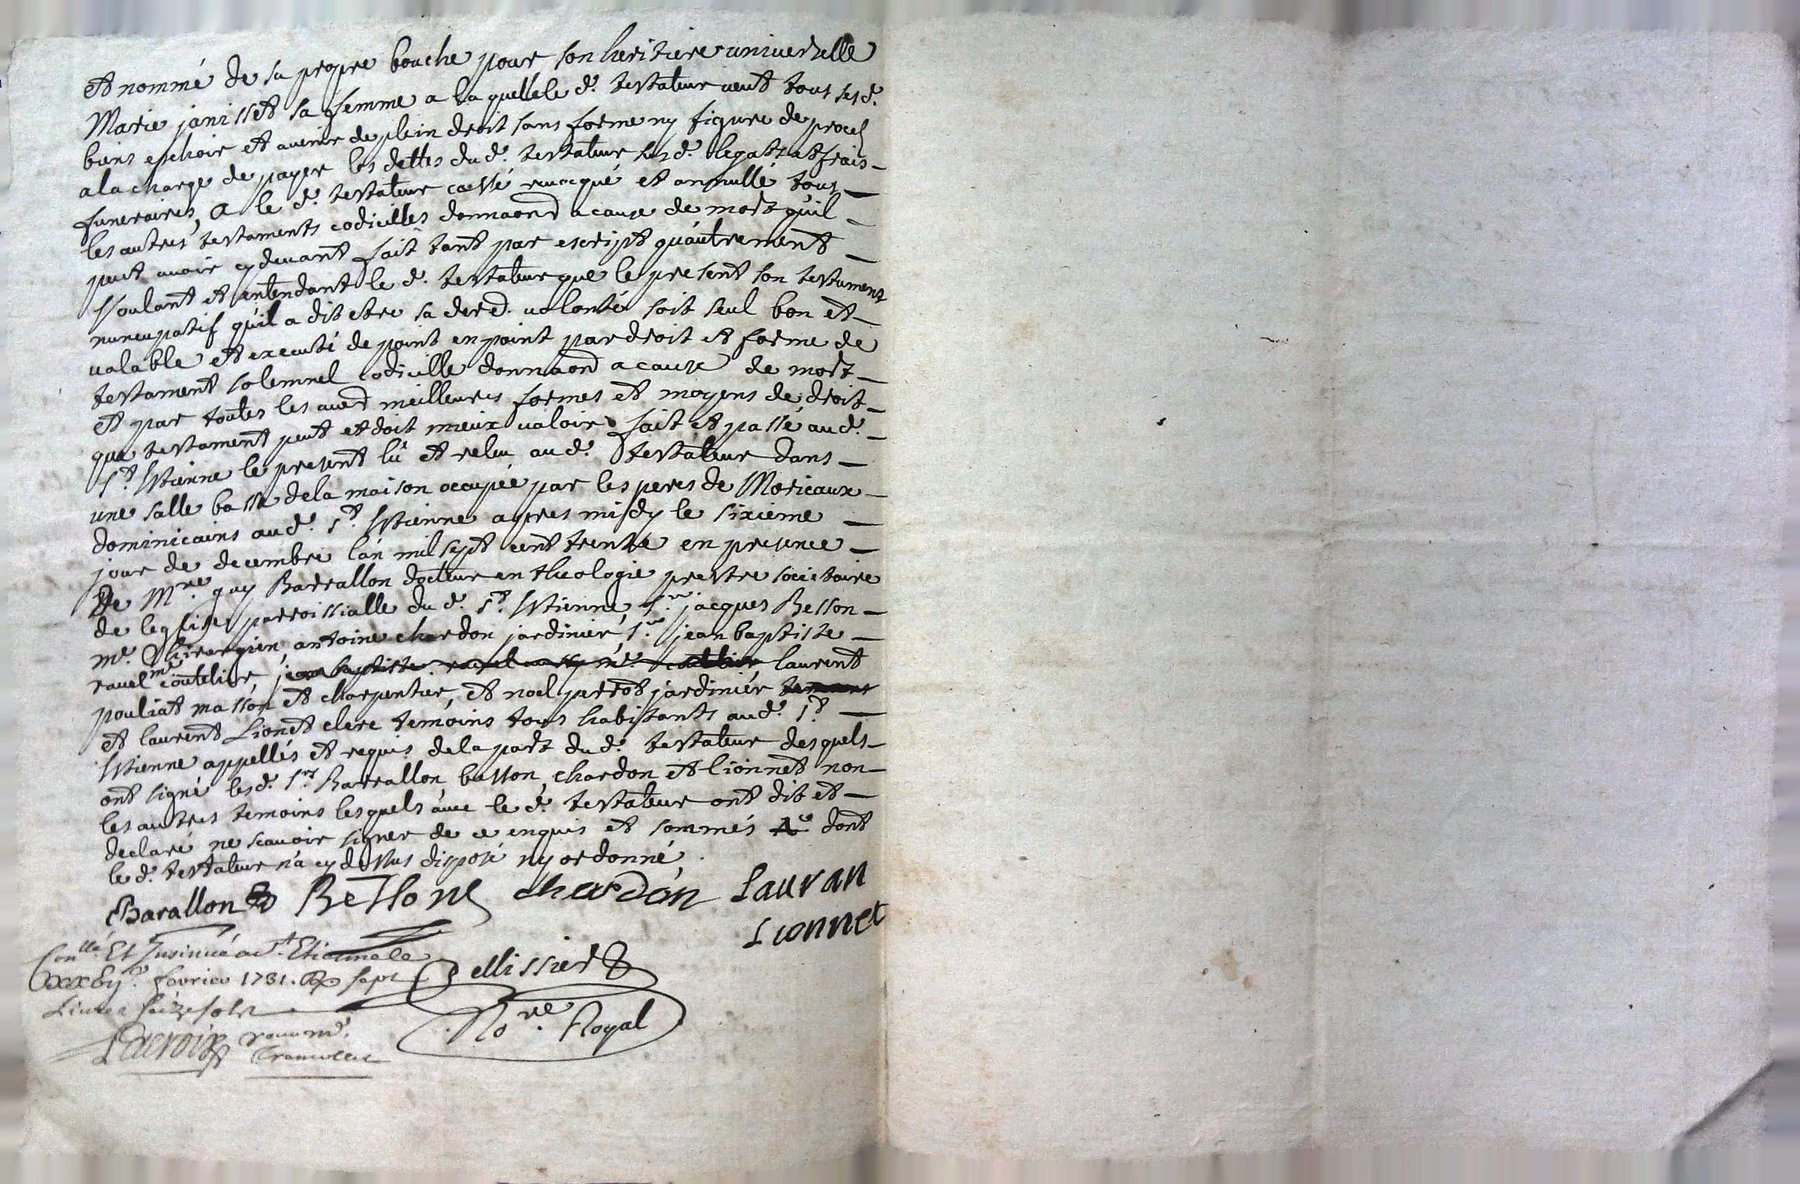 et nommé de sa propre bouche pour son heritiere universelle
Marie janisset sa femme a laquelle le d. testateur veut tous ses d.
biens eschoir et avenir de plein droit sans forme ny figure de proces
a la charge de payer les dettes du d. testateur ses d. legats et frais
funeraires, a le d. testateur cassé revocqué et annullé tous
les autres testaments codicilles donnaons a cause de mort qu'il
peut avoir cy devant fait tant par escript qu'autrement
voulant et entendant le d. testateur que le present son testament
nuncupatif qu'il a dit etre sa dere. volonté soit seul bon et
valable et executé de point en point par droit et forme de
testament solemnel codicille donnaon a cause de mort
et par toutes les autres meilleures formes et moyens de droit
que testament peut et doit mieux valoir fait et passé au d.
St. Etienne le present lû et releu au d. testateur dans
une salle basse de la maison occupée par les peres de Moriceaux
dominicains au d. St. Etienne apres midy le sixieme
jour de decembre l'an mil sept cent trente en presence
de Mre. guy Barrallon docteur en theologie prestre societaire
de leglise parroissialle du d. St. Etienne Sr. jacques Besson
me. Chirurgien antoine chardon jardinier Sr. jean baptiste
ravel me coutelier laurent
pouliat masson et charpentier, et noel perrot jardinier
et laurent Lionet clerc temoins tous habitants au d. St.
Etienne appellés et requis de la part du d. testateur desquels
ont signé les d. Srs Barrallon besson chardon et lionnet non
les autres temoins lesquels avec le d. testateur ont dit et
declaré ne scavoir signer de ce enquis et sommés dont
le d. testateur n'a cy dessus disposé ny ordonné.
Barallon Besson chardon Lauran
Lionnet
Conllé Et Insinué a St. Etienne le
fevrier 1731. R sept
Livres seize sols
Pellissier
Nore. Royal
Lacroix